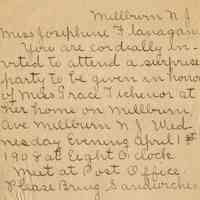 Millburn N J
Miss Josephine Flanagan
You are cordially in-
vited to attend a surprise
party to be given in honor
of Miss Grace Tichenor at
her home on Millburn
Ave Millburn N J. Wed-
nesday Evening April 1st
1908 at Eight O clock
Meet at Post Office
Please Bring Sandwiches